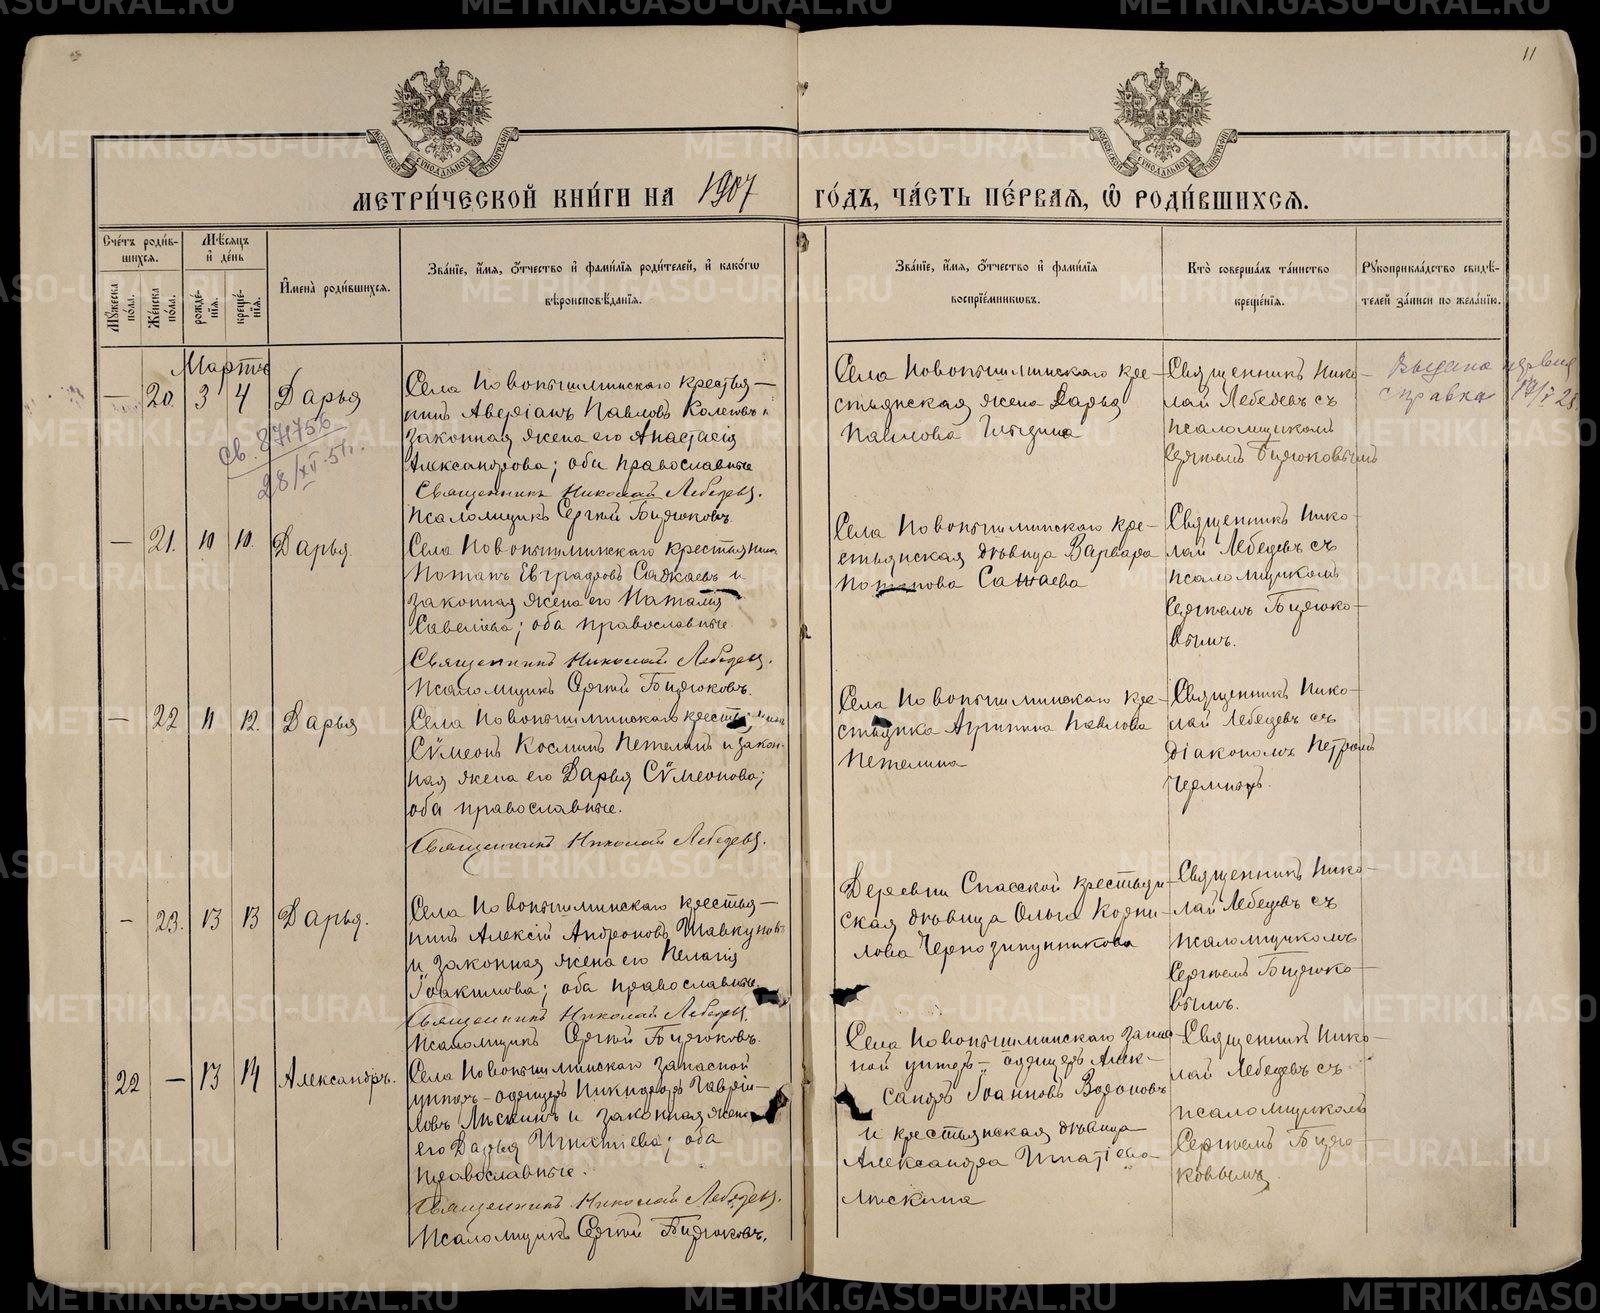 11
МОСКОВСКОЙ СУНОДАЛЬНОЙ ТИПОГРАФІИ
МОСКОВСКОЙ СУНОДАЛЬНОЙ ТИПОГРАФІИ
МЕТРИ́ЧЕСКОЙ КНИ́ГИ НА 1907 ГО́ДЪ, ЧА́СТЬ ПЕ́РВАЯ, Ѡ РОДИ́ВШИХСЯ.
Сче́тъ роди́в-
шихся.
Му́жеска по́ла.
Же́нска по́ла.
Мѣ́сяцъ
и҆ де́нь
рожде́-
нїя.
креще́-
нїя.
И҆мена̀ роди́вшихся.
Зва́нїе, и҆́мя, ѻ҆́тчество и҆ фами́лїя роди́телей, и҆ како́гѡ
вѣроисповѣ́данїя.
Зва́нїе, и҆́мя, ѻ҆́тчество и҆ фами́лїя
воспрїе́мникѡвъ.
Кто̀ соверша́лъ та́инство
креще́нїя.
Рꙋкоприкла́дство свидѣ́-
телей за́писи по жела́нїю.
Мартъ
— 20. 3 4 Дарья
Св. 871756
28/XII.51г.
Села Новопышминскаго крестья-
нинъ Аверіанъ Павловъ и
законная жена его Анастасія
Александрова; оба православные
Священникъ Николай Лебедевъ.
Псаломщикъ Сергій Бирюковъ
Села Новопышминскаго кре-
стьянская жена Дарья
Павлова
Священникъ Нико-
лай Лебедевъ съ
псаломщикомъ
Сергіемъ Бирюковымъ
Выдана
справка
— 21. 10 10. Дарья.
Села Новопышминскаго крестьянинъ
Потапъ Евграфовъ Сажаевъ и
законная жена его Наталія
Савеліева; оба православные
Священникъ Николай Лебедевъ.
Псаломщикъ Сергій Бирюковъ.
Села Новопышминскаго кре-
стьянская дѣвица Варвара
Потапова Сажаева
Священникъ Нико-
лай Лебедевъ съ
псаломщикомъ
Сергіемъ Бирюко-
вымъ.
— 22 11 12. Дарья
Села Новопышминскаго крестьянинъ
Сѵмеонъ Косминъ Петелинъ и закон-
ная жена его Дарья Сѵмеонова;
оба православные.
Священникъ Николай Лебедевъ.
Села Новопышминскаго кре-
стьянка Агрипина Павлова
Петелина
Священникъ Нико-
лай Лебедевъ съ
діакономъ Петромъ
— 23. 13 13 Дарья.
Села Новопышминскаго крестья-
нинъ Алексій Андроновъ Шавкуновъ
и законная жена его Пелагія
Іоакимова; оба православные
Священникъ Николай Лебедевъ.
Псаломщикъ Сергій Бирюковъ.
Деревни Спасской крестьян-
ская дѣвица Ольга Корни-
лова Чернозипунникова
Священникъ Нико-
лай Лебедевъ съ
псаломщикомъ
Сергіемъ Бирюко-
вымъ.
22 — 13 14 Александръ.
Села Новопышминскаго запасной
унтеръ-офицеръ Никифоръ Гаврии-
ловъ Лыскинъ и законная жена
его Дарья Игнатіева; оба
православные.
Священникъ Николай Лебедевъ.
Псаломщикъ Сергій Бирюковъ.
Села Новопышминскаго запас-
ной унтеръ-офицеръ Алек-
сандръ Іоанновъ Вороновъ
и крестьянская дѣвица
Александра Игнатіева
Лыскина
Священникъ Нико-
лай Лебедевъ съ
псаломщикомъ
Сергіемъ Бирю-
ковымъ.
METRIKI.GASO-URAL.RU